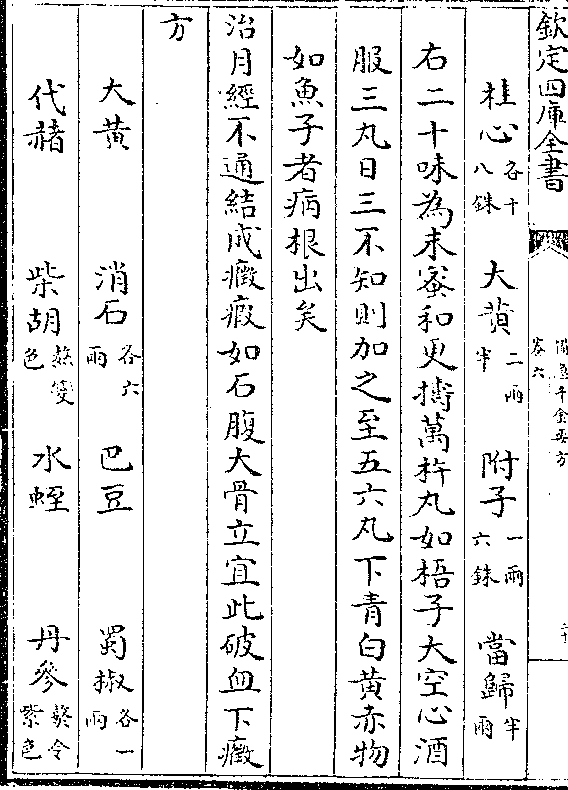 欽定四庫全書
備急千金要方
卷六
桂心各十八銖 大黄二兩半 附子一兩六銖 當歸半兩
右二十味為末蜜和更擣萬杵丸如梧子大空心酒
服三丸日三不知則加之至五六丸下青白黄赤物
如魚子者病根出矣
治月經不通結成癥瘕如石腹大骨立宜此破血下癥
方
大黄 消石各六兩 巴豆 蜀椒各一兩
代赭 柴胡熬變色 水蛭 丹參熬令紫色